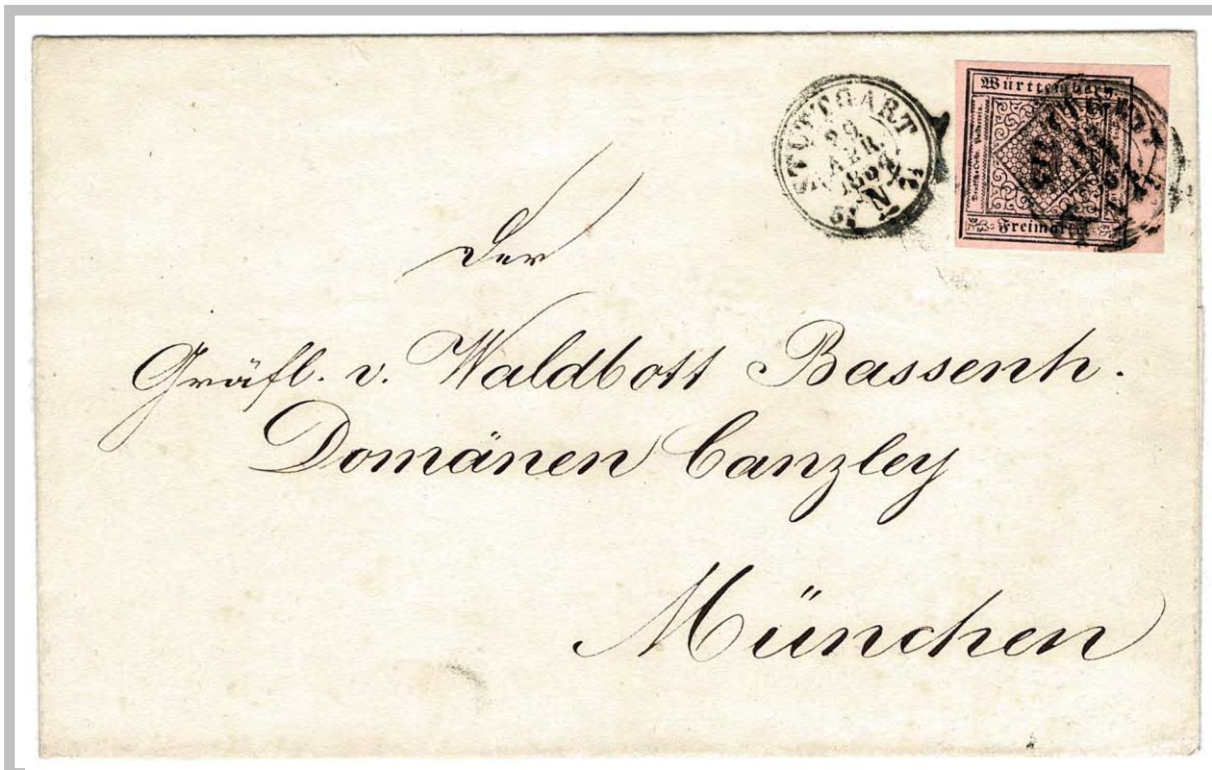 STUTTGART
29
APR.
1854
N
Württemberg
Freimarke
Der
Gräfl. v. Waldbott Bassenh.
Domänen Canzley
München